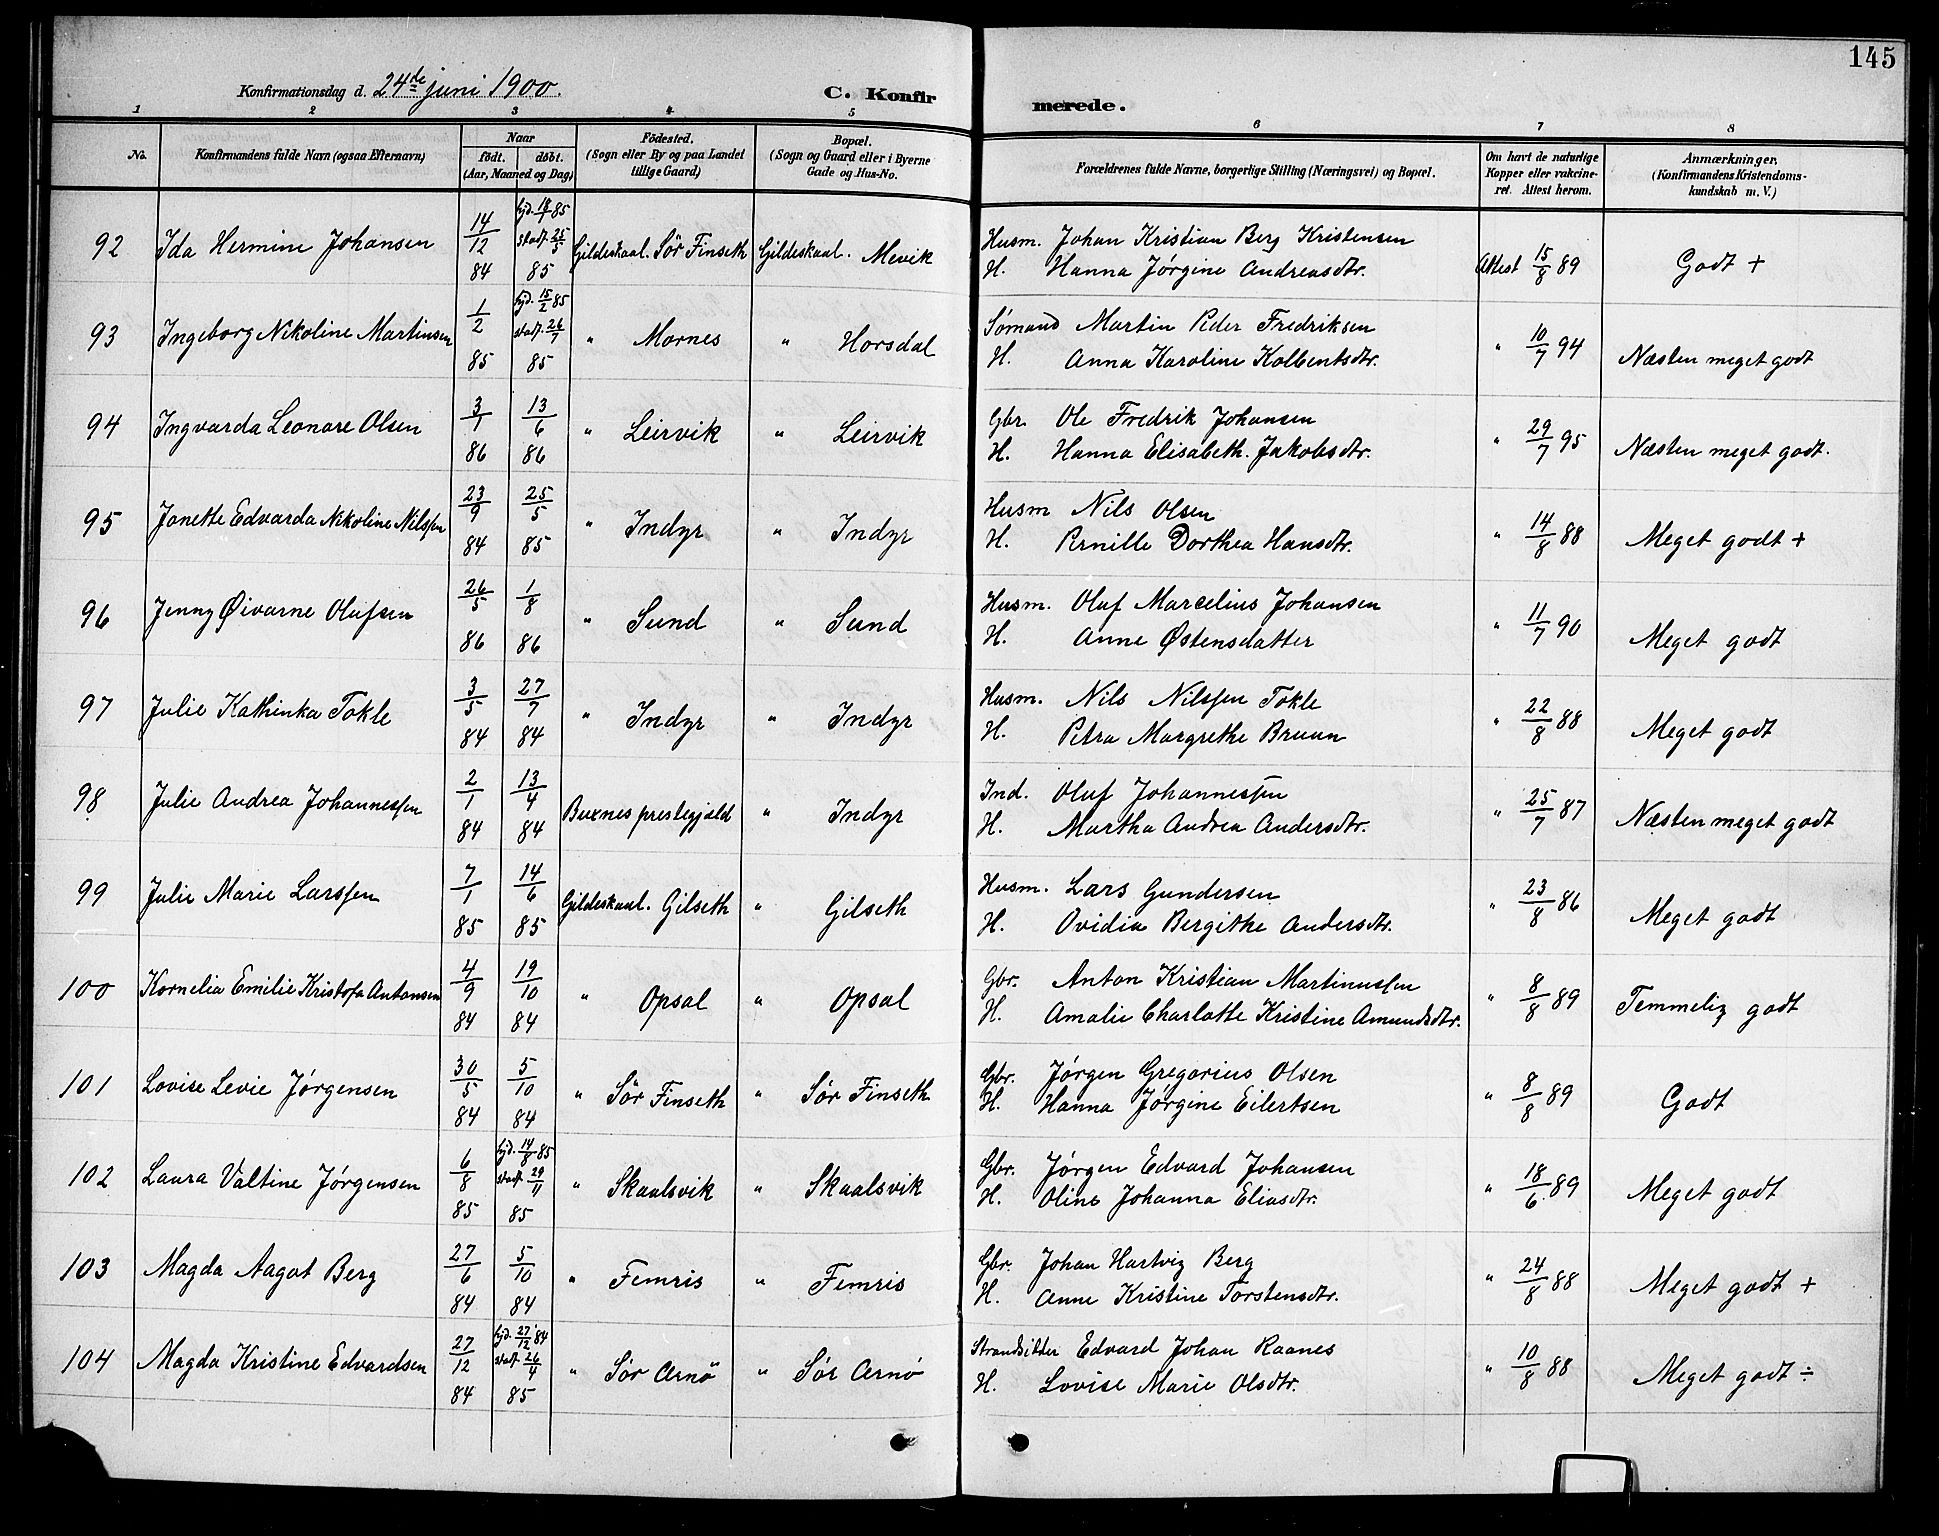 145
Konfirmationsdag d. 24de juni 1900.
C. Konfir
merede.
1 2 3 4 5 6 7 8
No.
Konfirmandens fulde Navn (ogsaa Efternavn)
Naar
födt. döbt.
(Aar, Maaned og Dag)
Födested.
(Sogn eller By og paa Landet
tillige Gaard)
Bopæl.
(Sogn og Gaard eller i Byerne
Gade og Hus-No.
Forældrenes fulde Navne, borgerlige Stilling (Næringsvei) og Bopæl.
Om havt de naturlige
Kopper eller vakcine-
ret. Attest herom.
Anmærkninger.
(Konfirmandens Kristendoms-
kundskab m. V.)
92 Ida Hermine Johansen 14/12 84 hjd. 18/1 85 stadf. 25/5 85 Gildeskaal. Sör Finseth Gildeskaal. Mevik
Husm. Johan Kristian Berg Kristensen
H. Hanna Jørgine Andreasdtr. Attest 15/8 89 Godt +
93 Ingeborg Nikoline Martinsen 1/2 85 hjd. 15/2 85 stadf. 26/7 85 " Mornes " Horsdal
Sømand Martin Peder Fredriksen
H. Anna Karoline Kolbentsdtr. " 10/7 94 Næsten meget godt
94 Ingvarda Leonare Olsen 3/1 86 13/6 86 " Leirvik " Leirvik
Gbr. Ole Fredrik Johansen
H. Hanna Elisabeth. Jakobsdtr. " 29/7 95 Næsten meget godt.
95 Janette Edvarda Nikoline Nilssen 23/9 84 25/5 85 " Indyr " Indyr
Husm Nils Olsen
H. Pernille Dorthea Hansdtr. " 14/8 88 Meget godt +
96 Jenny Øivarne Olufsen 26/5 86 1/8 86 " Sund " Sund
Husm. Oluf Marcelius Johansen
H. Anne Østensdatter " 11/7 90 Meget godt
97 Julie Kathinka Tokle 3/5 84 27/7 84 " Indyr " Indyr
Husm. Nils Nilssen Tokle
H. Petra Margrethe Bruun " 22/8 88 Meget godt
98 Julie Andrea Johannessen 2/1 84 13/4 84 Buxnes prestegjæld " Indyr
Ind. Oluf Johannessen
H. Martha Andrea Andersdtr. " 25/7 87 Næsten meget godt
99 Julie Marie Larssen 7/1 85 14/6 85 Gildeskaal. Gilseth " Gilseth
Husm. Lars Gundersen
H. Ovidia Bergithe Andersdtr. " 23/8 86 Meget godt
100 Kornelia Emilie Kristofa Antonsen 4/9 84 19/10 84 " Opsal " Opsal
Gbr. Anton Kristian Martinussen
H. Amalie Charlotte Kristine Amundsdtr. " 8/8 89 Temmelig godt
101 Lovise Levie Jørgensen 30/5 84 5/10 84 " Sör Finseth " Sør Finseth
Gbr. Jørgen Gregorius Olsen
H. Hanna Jørgine Eilertsen " 8/8 89 Godt
102 Laura Valtine Jørgensen 6/8 85 hjd. 14/8 85 stadf. 29/11 85 " Skaalsvik " Skaalsvik
Gbr. Jørgen Edvard Johansen
H. Oline Johanna Eliasdtr. " 18/6 89 Meget godt
103 Magda Aagot Berg 27/6 84 5/10 84 " Femris " Femris
Gbr. Johan Hartvig Berg
H. Anne Kristine Torstensdtr. " 24/8 88 Meget godt +
104 Magda Kristine Edvardsen 27/12 84 hjd. 27/12 84 stadf. 26/4 85 " Sør Arnö " Sør Arnø
Strandsidder Edvard Johan Raanes
H. Lovise Marie Olsdtr. " 10/8 88 Meget godt ÷